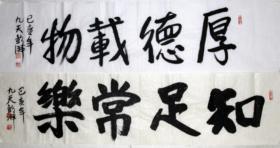 厚德載物
己亥年
九天
知足常樂
己亥年
九天